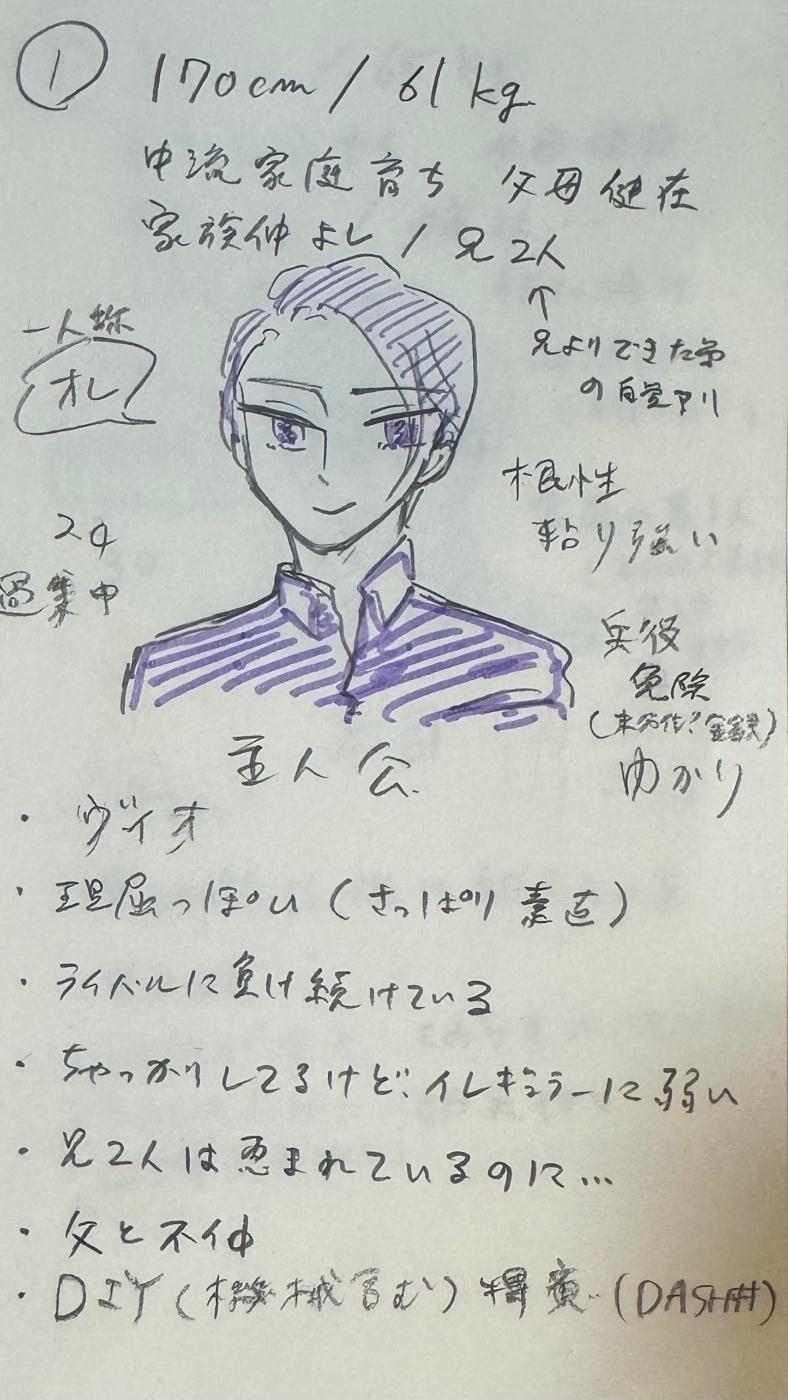 ① 170cm / 61kg
中流家庭育ち 父母健在
家族仲よし / 兄2人
↑
兄よりできた弟
の自覚アリ
一人称
オレ
根性
粘り強い
24
過集中
兵役
免除
ゆかり
主人公
・ヴィオ
・理屈っぽい（さっぱり素直）
・ライバルに負け続けている
・ちゃっかりしてるけどイレギュラーに弱い
・兄2人は恵まれているのに…
・父と不仲
・DIY（機械含む）得意（DASH村）